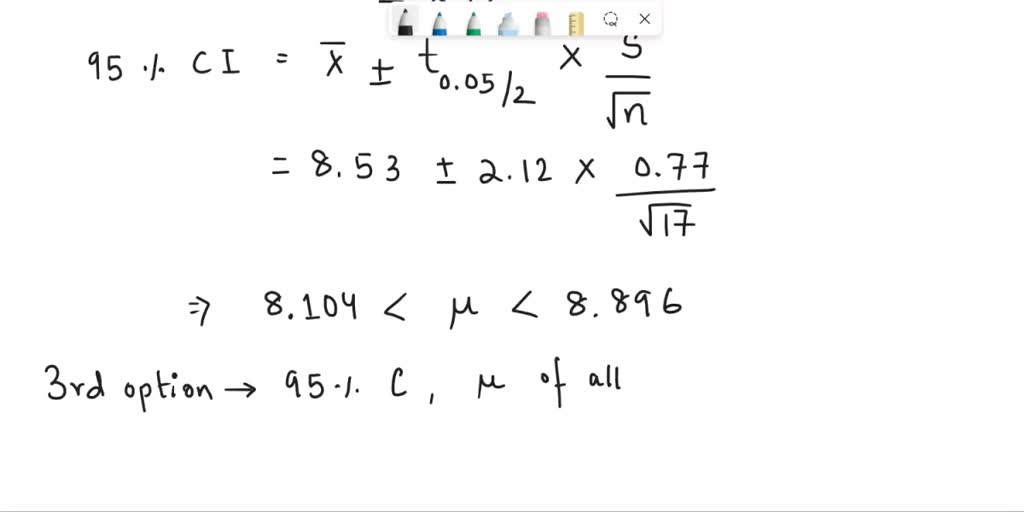 95 % CI = x̄ ± t₀.₀₅/₂ × S/√n
= 8.53 ± 2.12 × 0.77/√17
⇒ 8.104 < μ < 8.896
3rd option → 95 % C, μ of all